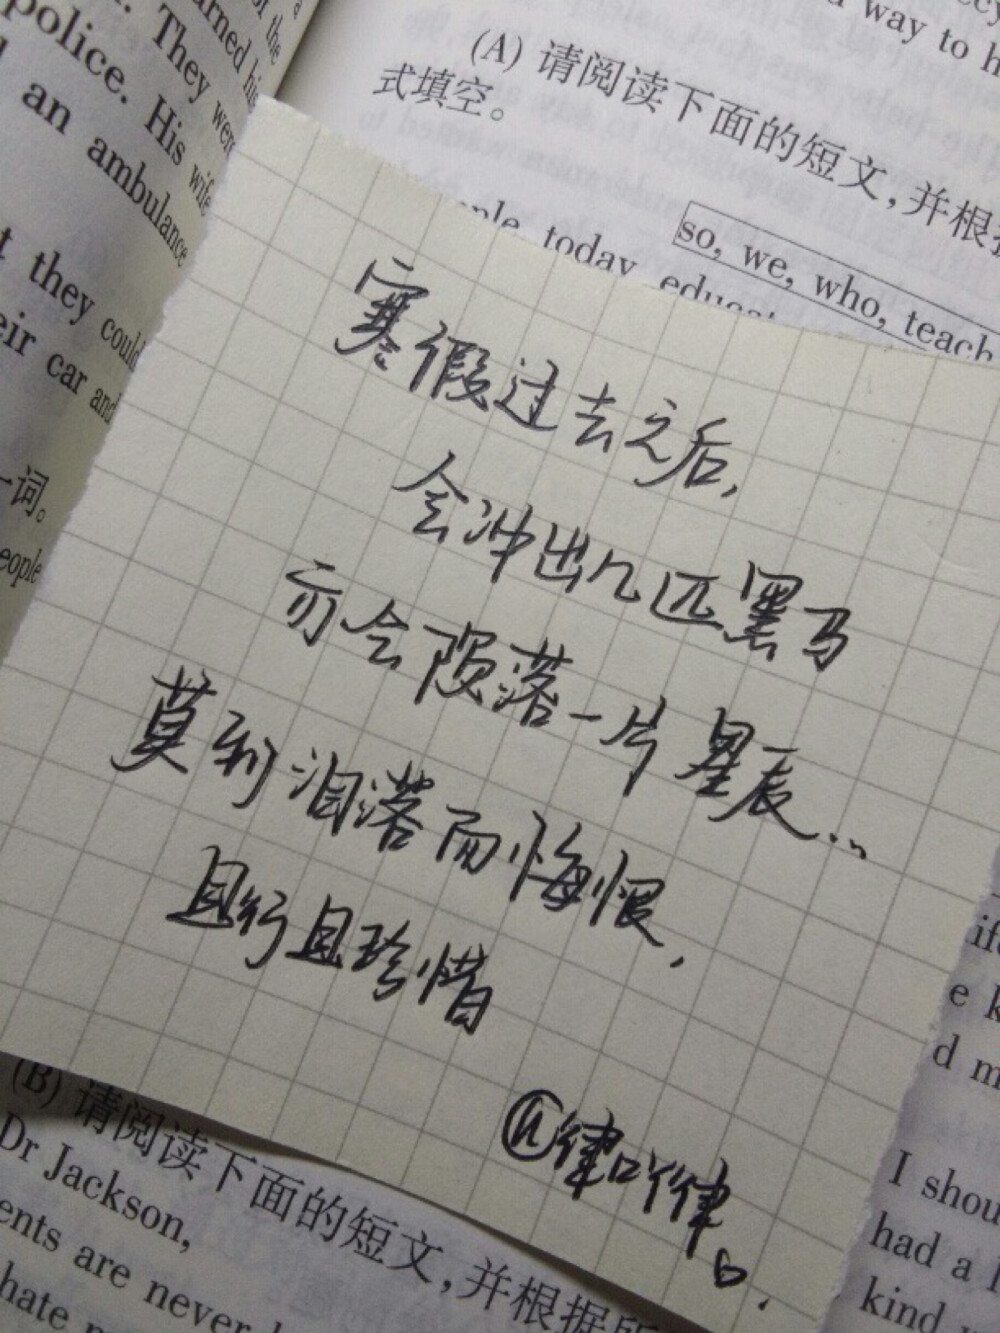 police. His wife
an ambulance
they could
car and
词。
(A) 请阅读下面的短文,并根据
式填空。
today
so, we, who, teach
way to
寒假过去之后,
会冲出几匹黑马
亦会陨落一片星辰...
莫到泪落而悔恨,
且行且珍惜
@律吖律。
(B) 请阅读下面的短文,并根据所
Dr Jackson,
ents are never
hate
I shou
had a
kind